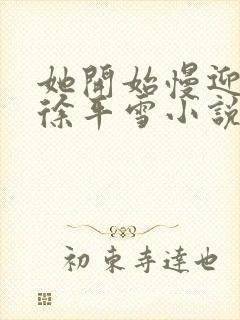 她開始慢迎
徐平雪小說
初東寺達也